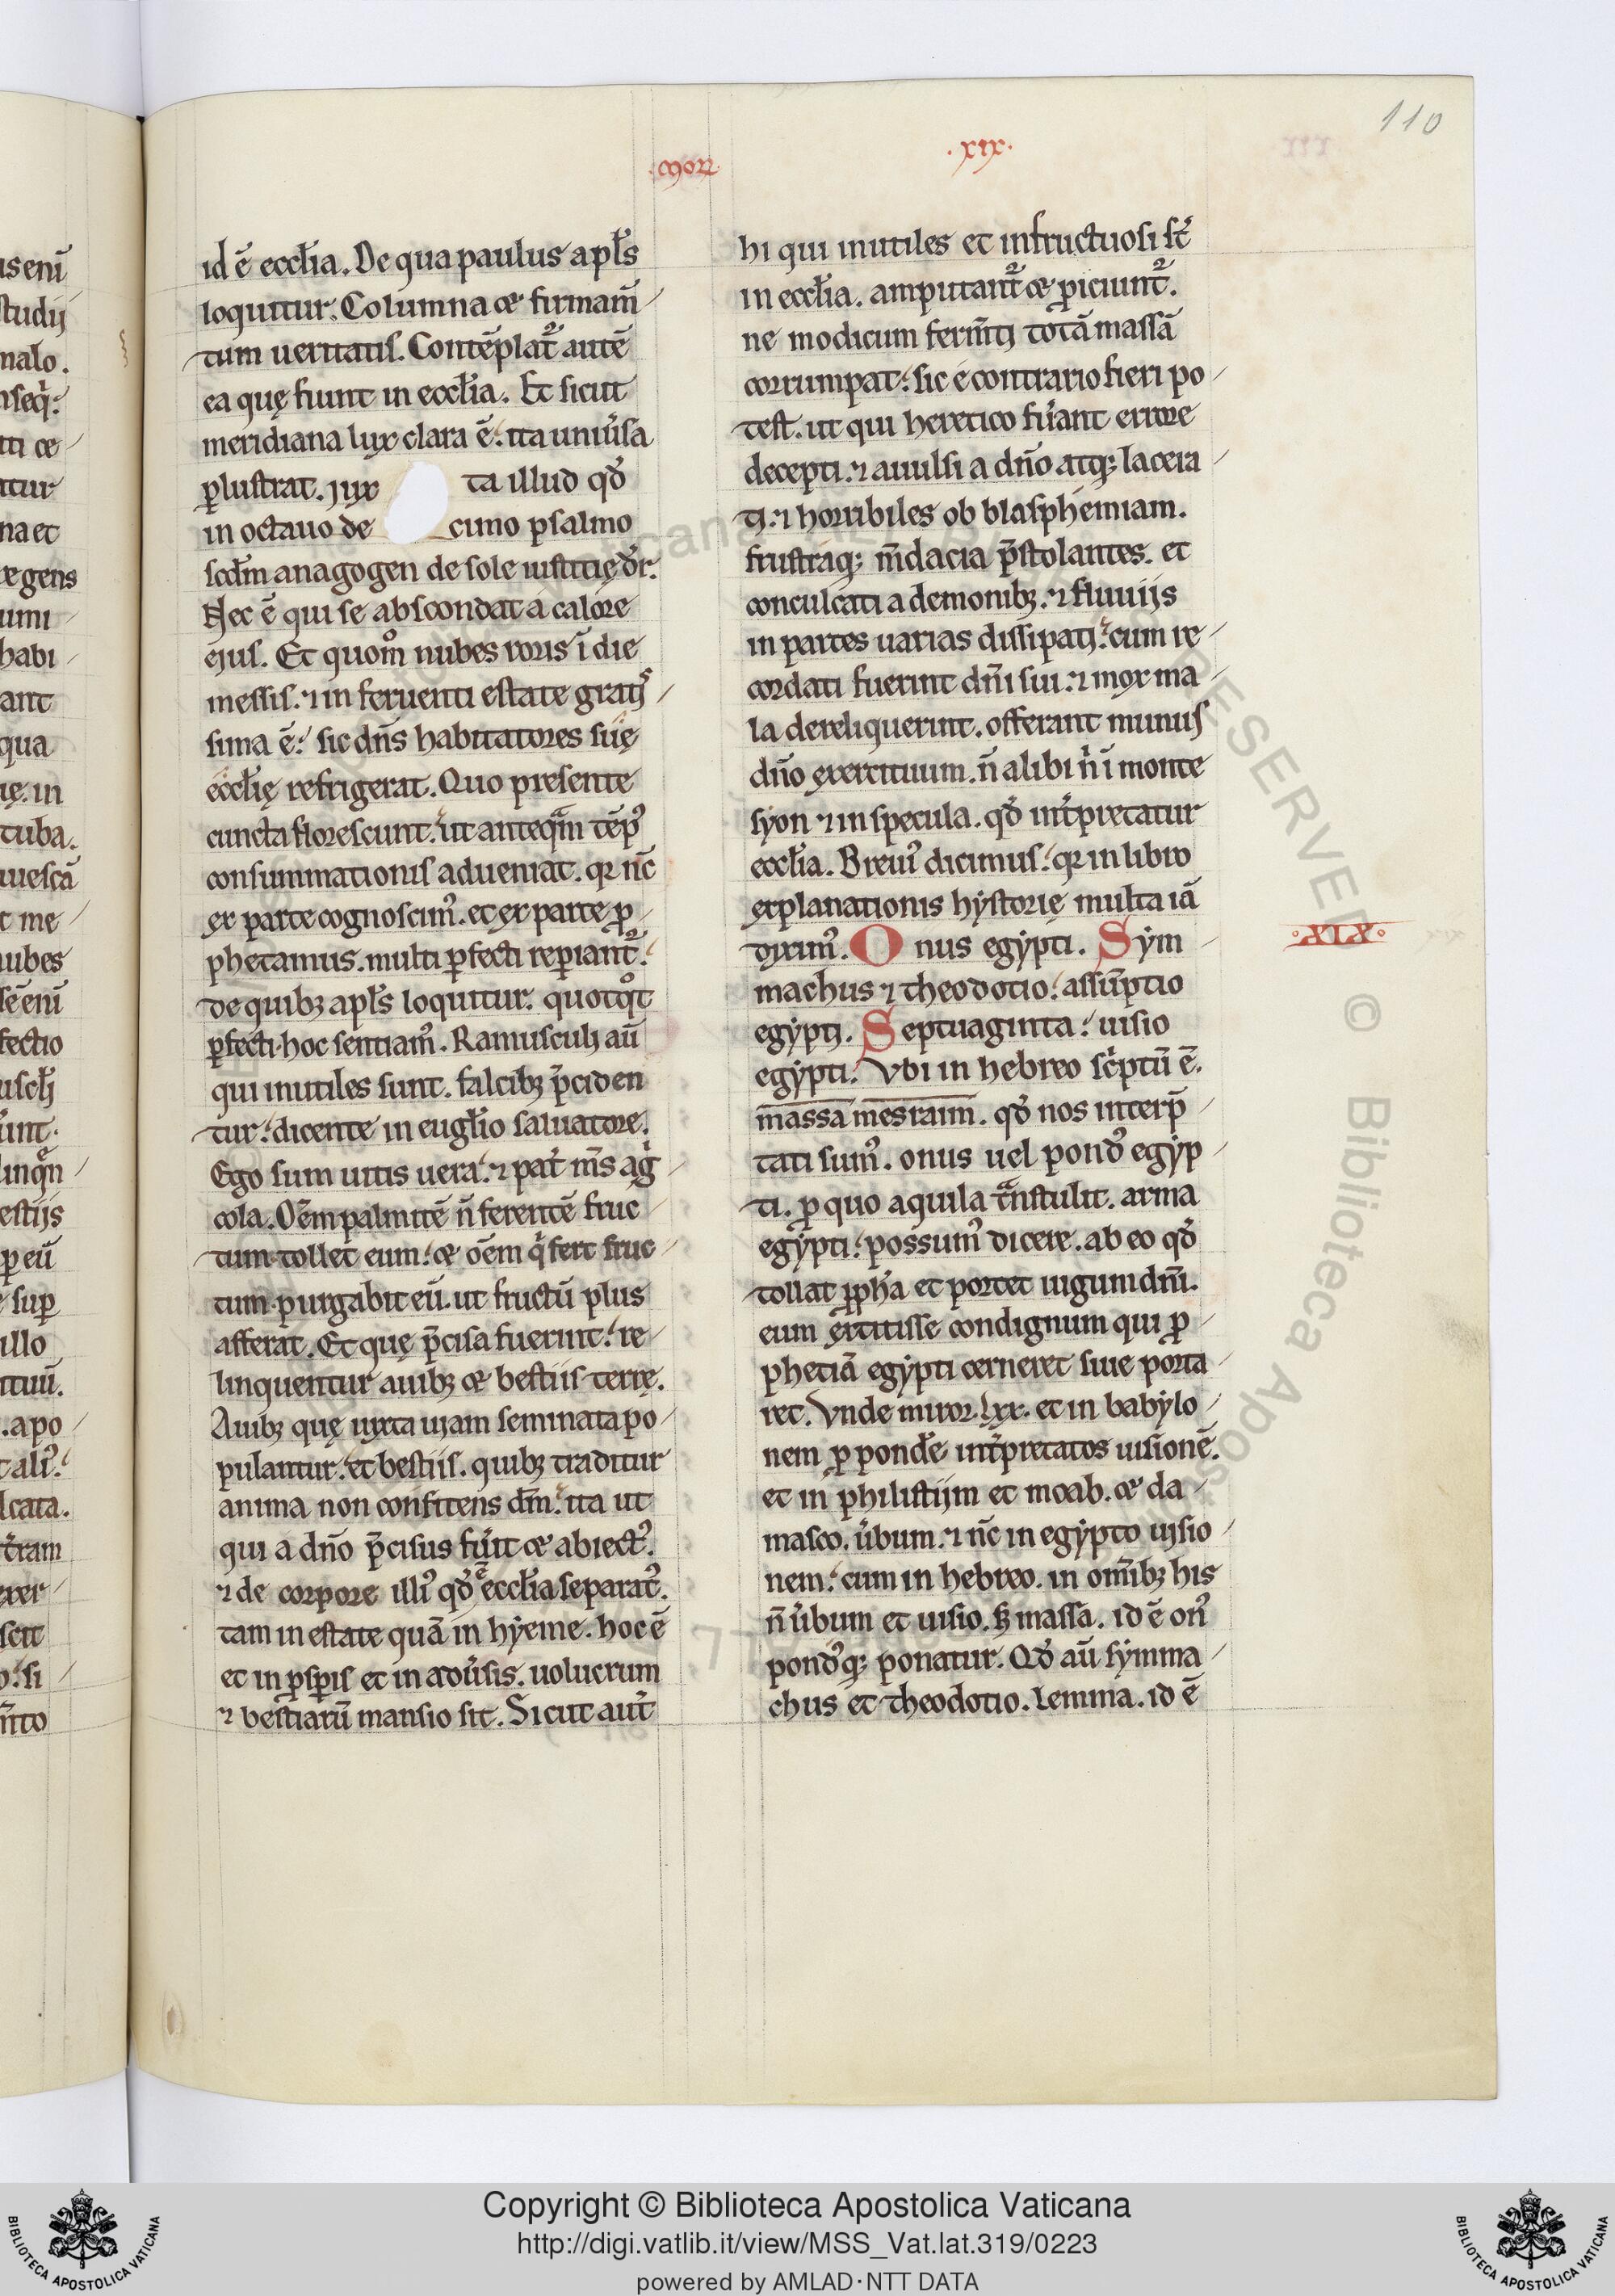 110
.xix.
id ē eccl̄ia. De qua paulus apl̄s
loquitur. Columna & firmam̄
tum ueritatis. Contēplat᷑ autē
ea quę fiunt in eccl̄ia. Et sicut
meridiana lux clara ē. ita uniu̓sa
ꝑlustrat. jux ta illud qd̓
in octauo de cimo psalmo
scd̄m anagogen de sole iustitię dr̄.
Nec ē qui se abscondat a calore
ejus. Et quom̊ nubes roris ī die
messis. ⁊ in feruenti estate gratis
sima ē. sic dn̄s habitatores suę
eccl̄ię refrigerat. Quo presente
cuncta florescunt. ut anteqᷓm tēpꝰ
consummationis adueniat. qr nc̄
ex parte cognoscimꝰ. et ex parte ꝓ
phetamus. multi ꝑfecti reꝑiant᷑.
de quibꝫ apl̄s loquitur. quotqͦt
ꝑfecti hoc sentiamꝰ. Ramusculj aū
qui inutiles sunt. falcibꝫ p̄ciden
tur. dicente in eugl̄io saluatore.
Ego sum uitis uera. ⁊ pat̓ m̄s agͥ
cola. Oēm palmitē n̄ ferentē fruc
tum tollet eum. & oēm qͥ fert fruc
tum purgabit eū. ut fructū plus
afferat. Et quę p̄cisa fuerint. re
linquentur auibꝫ & bestiis terrę.
Auibꝫ quę iuxta uiam seminata po
pulantur. et bestiis. quibꝫ traditur
anima non confitens dm̄. ita ut
qui a dn̄o p̄cisus fu̓it & abiectꝰ.
⁊ de corpore illiꝰ qd̓ ē eccl̄ia separatꝰ.
tam in estate quā in hẏeme. hoc ē
et in ꝓsꝑis et in adu̓sis. uolucrum
⁊ bestiarū mansio sit. Sicut aut̄
hi qui inutiles et infructuosi st̄
in eccl̄ia. amputant᷑ & ꝓiciunt᷑.
ne modicum ferm̄tj totā massā
corrumpat. sic e contrario fieri po
test. ut qui heretico fu̓ant errore
decepti. ⁊ auulsi a dn̄o atqꝫ lacera
tj. ⁊ horribiles ob blasphemiam.
frustraqꝫ m̄dacia p̄stolantes. et
conculcati a demonibꝫ. ⁊ fluuijs
in partes uarias dissipatj. cum re
cordati fuerint dn̄i sui. ⁊ mox ma
la dereliquerint. offerant munus
dn̄o exercituum. n̄ alibi nͥ ī monte
sẏon ⁊ in specula. qd̓ int̓pretatur
eccl̄ia. Breuit̓ dicimus. qr in libro
explanationis hẏstorię multa iā
diximꝰ. Onus egẏpti. Sẏm
machus ⁊ theodotio. assūptio
egẏptj. Septuaginta. uisio
egẏpti. Vbi in hebreo scͥptū ē.
massa mesraim. qd̓ nos interp̄
tati sumꝰ. onus uel pondꝰ egẏp
ti. ꝓ quo aquila tᷓnstulit. arma
egẏpti. possumꝰ dicere. ab eo qd̓
tollat ꝓph̄a et portet iugum dn̄i.
eum extitisse condignum qui ꝓ
phetiā egẏpti cerneret siue porta
ret. Vnde miror .lxx. et in babẏlo
nem ꝓ pond̓e int̓pretatos uisionē.
et in philistijm et moab. & da
masco. u̓bum. ⁊ nc̄ in egẏpto uisio
nem. cum in hebreo. in om̄ibꝫ his
n̄ u̓bum et uisio. sꝫ massa. id ē onꝰ
pondꝰqꝫ ponatur. Qd̓ aū sẏmma
chus et theodotio. Lemma. id ē
.XIX.
us enī
studij
malo.
nseqͥ.
ti &
itur
na et
regens
umi
habi
ant
qua
ię. in
tuba.
t me
nubes
sē enī
fectio
estijs
ꝑ eū
suꝑ
illo
ituū.
. apo
aliꝰ.
lcata.
t̓ram
exer
scit
o. si
n̄to
Copyright © Biblioteca Apostolica Vaticana
http://digi.vatlib.it/view/MSS_Vat.lat.319/0223
powered by AMLAD·NTT DATA
BIBLIOTECA APOSTOLICA VATICANA
BIBLIOTECA APOSTOLICA VATICANA